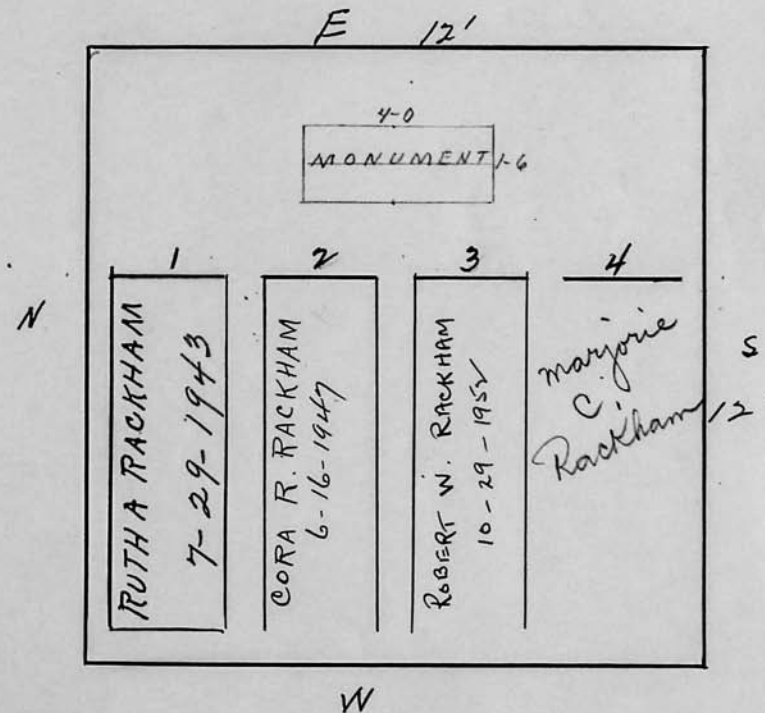 E 12'
4-0
MONUMENT 1-6
1 2 3 4
N
RUTH A RACKHAM
7-29-1943
CORA R. RACKHAM
6-16-1947
ROBERT W. RACKHAM
10-29-1952
Marjorie
C.
Rackham
S
12
W